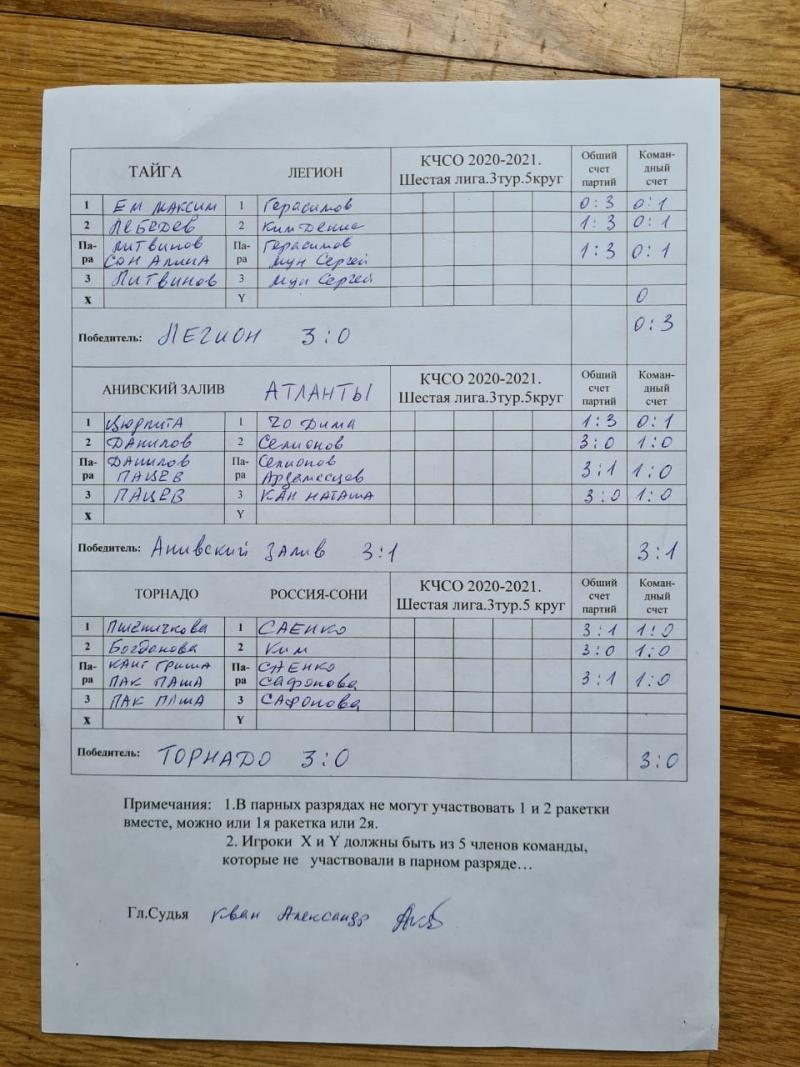 ТАЙГА ЛЕГИОН КЧСО 2020-2021. Шестая лига.3тур.5круг Общий счет партий Коман-дный счет
1 ЕМ МАКСИМ 1 Герасимов 0:3 0:1
2 ЛЕБЕДЕВ 2 Ким Денис 1:3 0:1
Па-ра ЛИТВИНОВ Па-ра Герасимов 1:3 0:1
СОН АЛЛИА Мун Сергей
3 Литвинов 3 Мун Сергей
X Y 0
Победитель: ЛЕГИОН 3:0 0:3
АНИВСКИЙ ЗАЛИВ АТЛАНТЫ КЧСО 2020-2021. Шестая лига.3тур.5круг Общий счет партий Коман-дный счет
1 1 Чо Дима 1:3 0:1
2 ДАНИЛОВ 2 Селионов 3:0 1:0
Па-ра ДАНИЛОВ Па-ра Селионов 3:1 1:0
ПАЦЕВ
3 ПАЦЕВ 3 КАН НАТАША 3:0 1:0
X Y
Победитель: Анивский залив 3:1 3:1
ТОРНАДО РОССИЯ-СОНИ КЧСО 2020-2021. Шестая лига.3тур.5 круг Общий счет партий Коман-дный счет
1 Пшеничкова 1 САЕНКО 3:1 1:0
2 Богданова 2 Ким 3:0 1:0
Па-ра ГРИША Па-ра САЕНКО 3:1 1:0
ПАК ПАША САФОНОВА
3 ПАК ПАША 3 САФОНОВА
X Y
Победитель: ТОРНАДО 3:0 3:0
Примечания: 1.В парных разрядах не могут участвовать 1 и 2 ракетки
вместе, можно или 1я ракетка или 2я.
2. Игроки X и Y должны быть из 5 членов команды,
которые не участвовали в парном разряде…
Гл.Судья Кван Александр